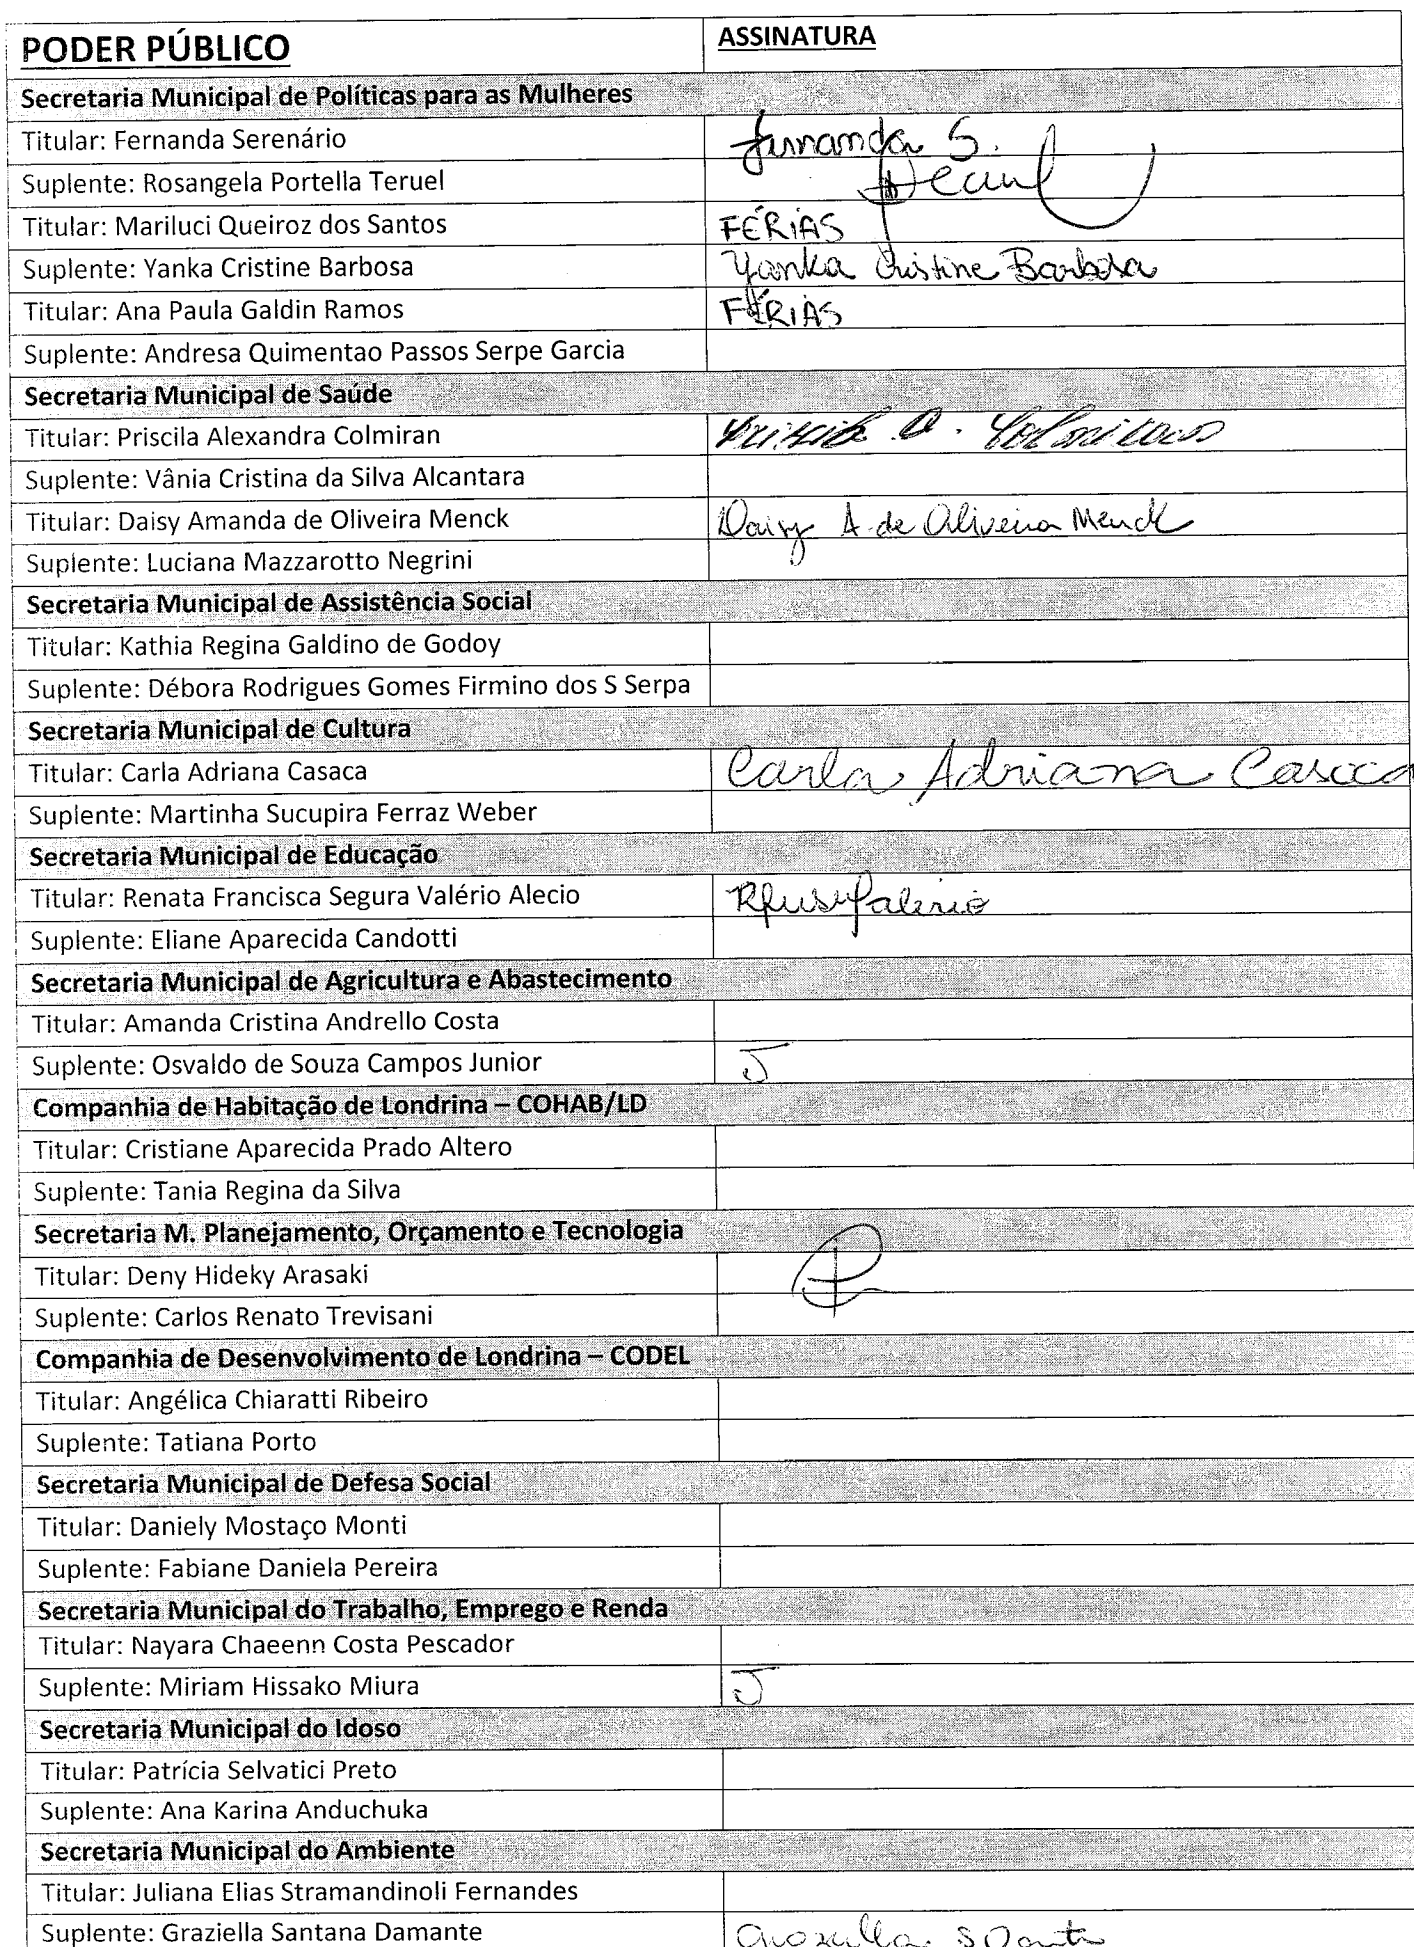 PODER PÚBLICO ASSINATURA
Secretaria Municipal de Políticas para as Mulheres
Titular: Fernanda Serenário Fernanda S.
Suplente: Rosangela Portella Teruel
Titular: Mariluci Queiroz dos Santos FÉRIAS
Suplente: Yanka Cristine Barbosa Yanka Cristine Barbosa
Titular: Ana Paula Galdin Ramos FÉRIAS
Suplente: Andresa Quimentao Passos Serpe Garcia
Secretaria Municipal de Saúde
Titular: Priscila Alexandra Colmiran Priscila A.
Suplente: Vânia Cristina da Silva Alcantara
Titular: Daisy Amanda de Oliveira Menck Daisy A. de Oliveira Menck
Suplente: Luciana Mazzarotto Negrini
Secretaria Municipal de Assistência Social
Titular: Kathia Regina Galdino de Godoy
Suplente: Débora Rodrigues Gomes Firmino dos S Serpa
Secretaria Municipal de Cultura
Titular: Carla Adriana Casaca Carla Adriana Casaca
Suplente: Martinha Sucupira Ferraz Weber
Secretaria Municipal de Educação
Titular: Renata Francisca Segura Valério Alecio
Suplente: Eliane Aparecida Candotti
Secretaria Municipal de Agricultura e Abastecimento
Titular: Amanda Cristina Andrello Costa
Suplente: Osvaldo de Souza Campos Junior J
Companhia de Habitação de Londrina – COHAB/LD
Titular: Cristiane Aparecida Prado Altero
Suplente: Tania Regina da Silva
Secretaria M. Planejamento, Orçamento e Tecnologia
Titular: Deny Hideky Arasaki
Suplente: Carlos Renato Trevisani
Companhia de Desenvolvimento de Londrina – CODEL
Titular: Angélica Chiaratti Ribeiro
Suplente: Tatiana Porto
Secretaria Municipal de Defesa Social
Titular: Daniely Mostaço Monti
Suplente: Fabiane Daniela Pereira
Secretaria Municipal do Trabalho, Emprego e Renda
Titular: Nayara Chaeenn Costa Pescador
Suplente: Miriam Hissako Miura J
Secretaria Municipal do Idoso
Titular: Patrícia Selvatici Preto
Suplente: Ana Karina Anduchuka
Secretaria Municipal do Ambiente
Titular: Juliana Elias Stramandinoli Fernandes
Suplente: Graziella Santana Damante